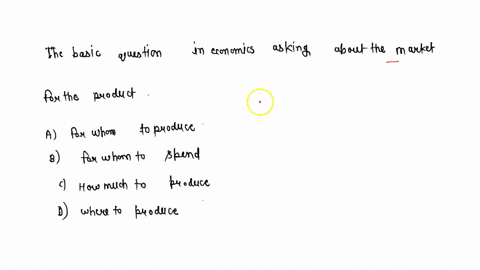 The basic question in economics asking about the market
for the product .
A) for whom to produce
B) for whom to spend
C) How much to produce
D) where to produce